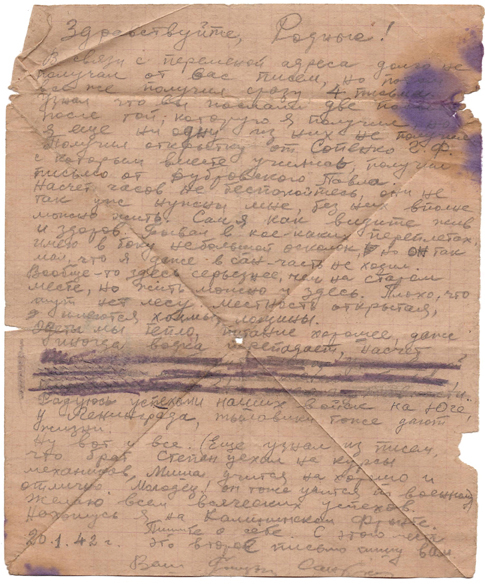 Здравствуйте, Родные!
В связи с переменой адреса долго не
получал от вас писем, но
все же получил сразу 4 письма
узнал что вы послали две
после той, которую я получил
я еще ни одну из них не получил
Получил открытку от Г.Ф.
с которым вместе учились, получил
письмо от Дубровского Павла
Насчет часов не беспокойтесь, они не
так уж нужны мне без них вполне
можно жить. Сам я как видите жив
и здоров. Бывал в кое-каких переплетах.
имею в боку небольшой осколок, но он так
мал, что я даже в сан-часть не ходил.
Вообще-то здесь серьезнее, чем на старом
месте, но жить можно и здесь. Плохо, что
тут нет лесу местность открытая,
имеются холмы лощины.
Одеты мы тепло, питание хорошее, даже
иногда водка перепадает, насчет
успехами наших войск на Юге,
у Ленинграда, тоже дают
жизни.
Ну вот и все (Еще узнал из писем,
что брат Степан уехал на курсы
механиков, Миша учится на хорошо и
отлично Молодец! он тоже учится по военному
Желаю всем всяческих успехов.
Нахожусь я на Калининском фронте.
Пишите о себе. С этого места
20.1.42 г. это второе письмо пишу вам
Ваш